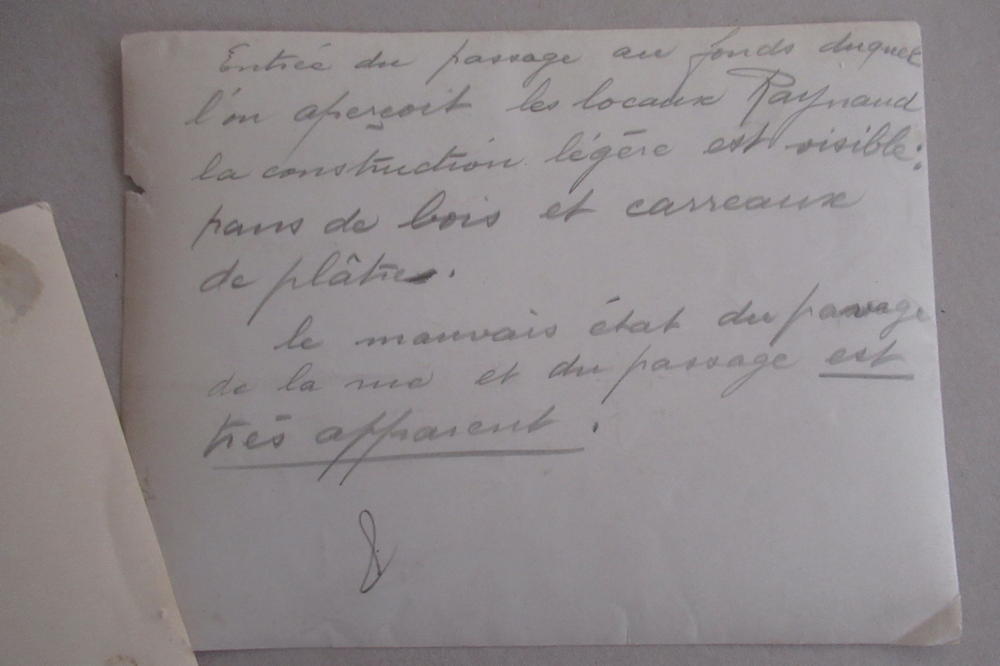 Entrée du passage au fonds duquel
l'on aperçoit les locaux Raynaud
la construction légère est visible :
pans de bois et carreaux
de plâtre.
le mauvais état du pavage
de la rue et du passage est
très apparent.
8